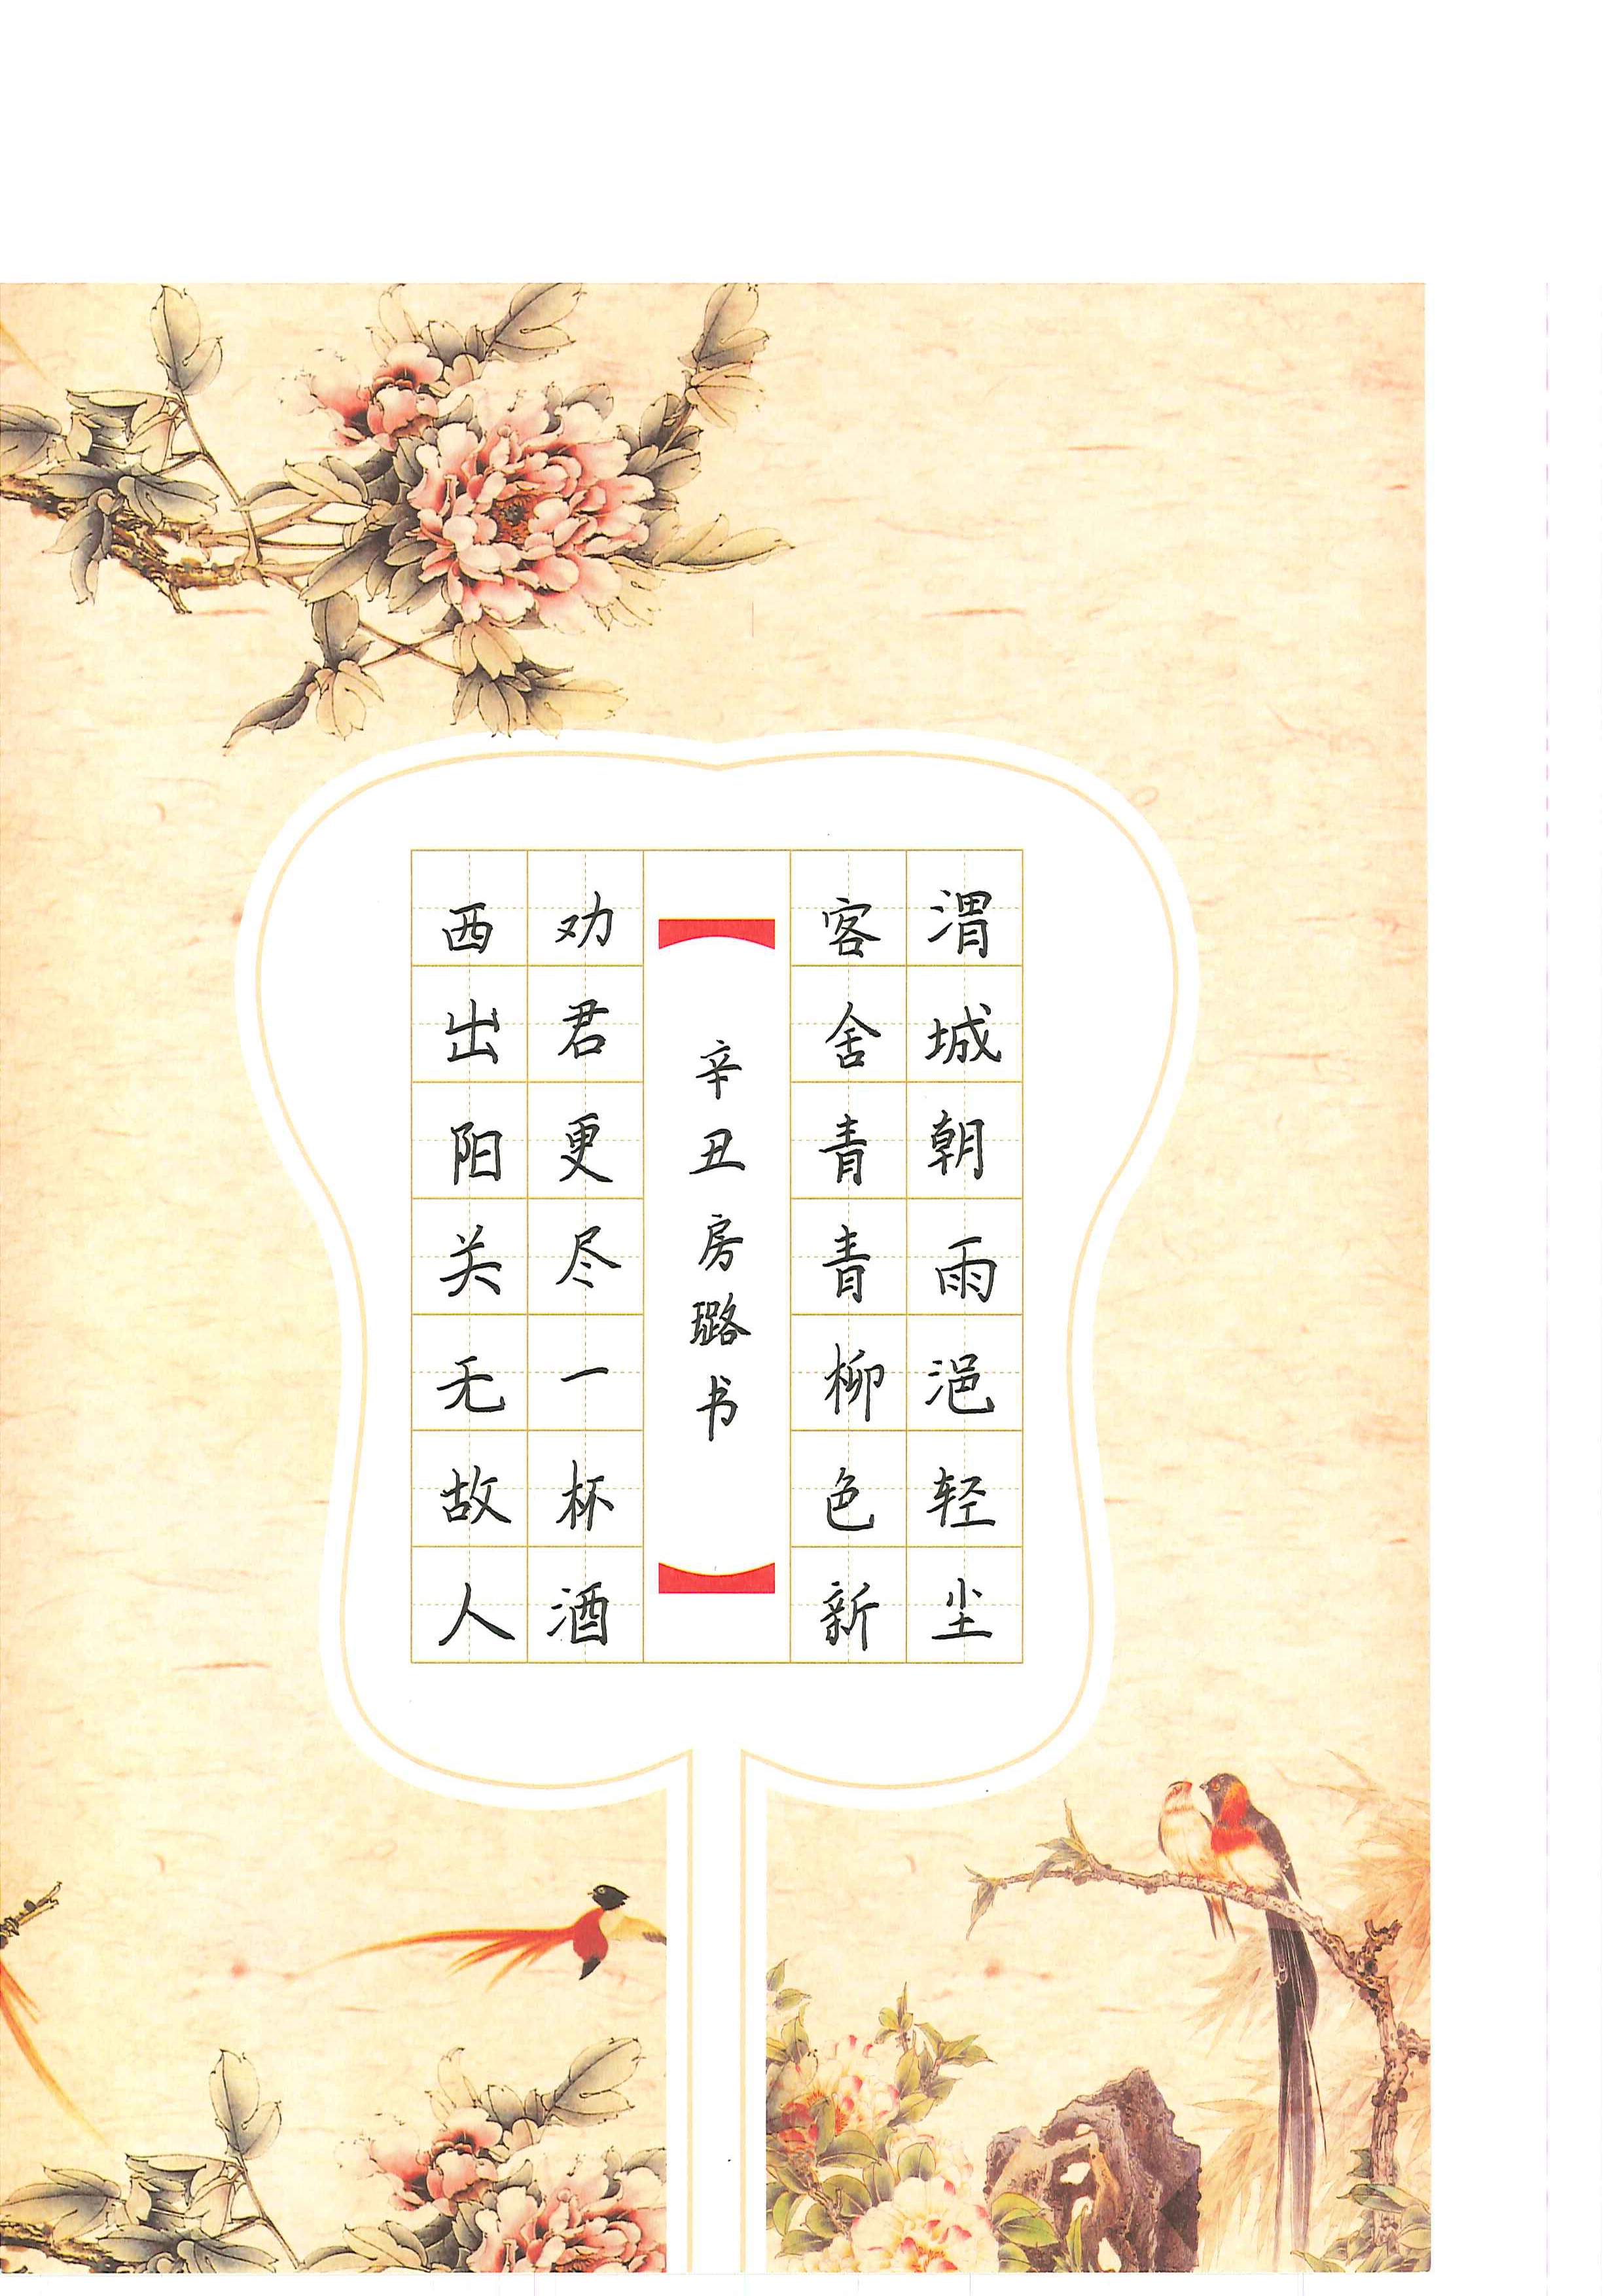 渭城朝雨浥轻尘
客舍青青柳色新
辛丑房璐书
劝君更尽一杯酒
西出阳关无故人